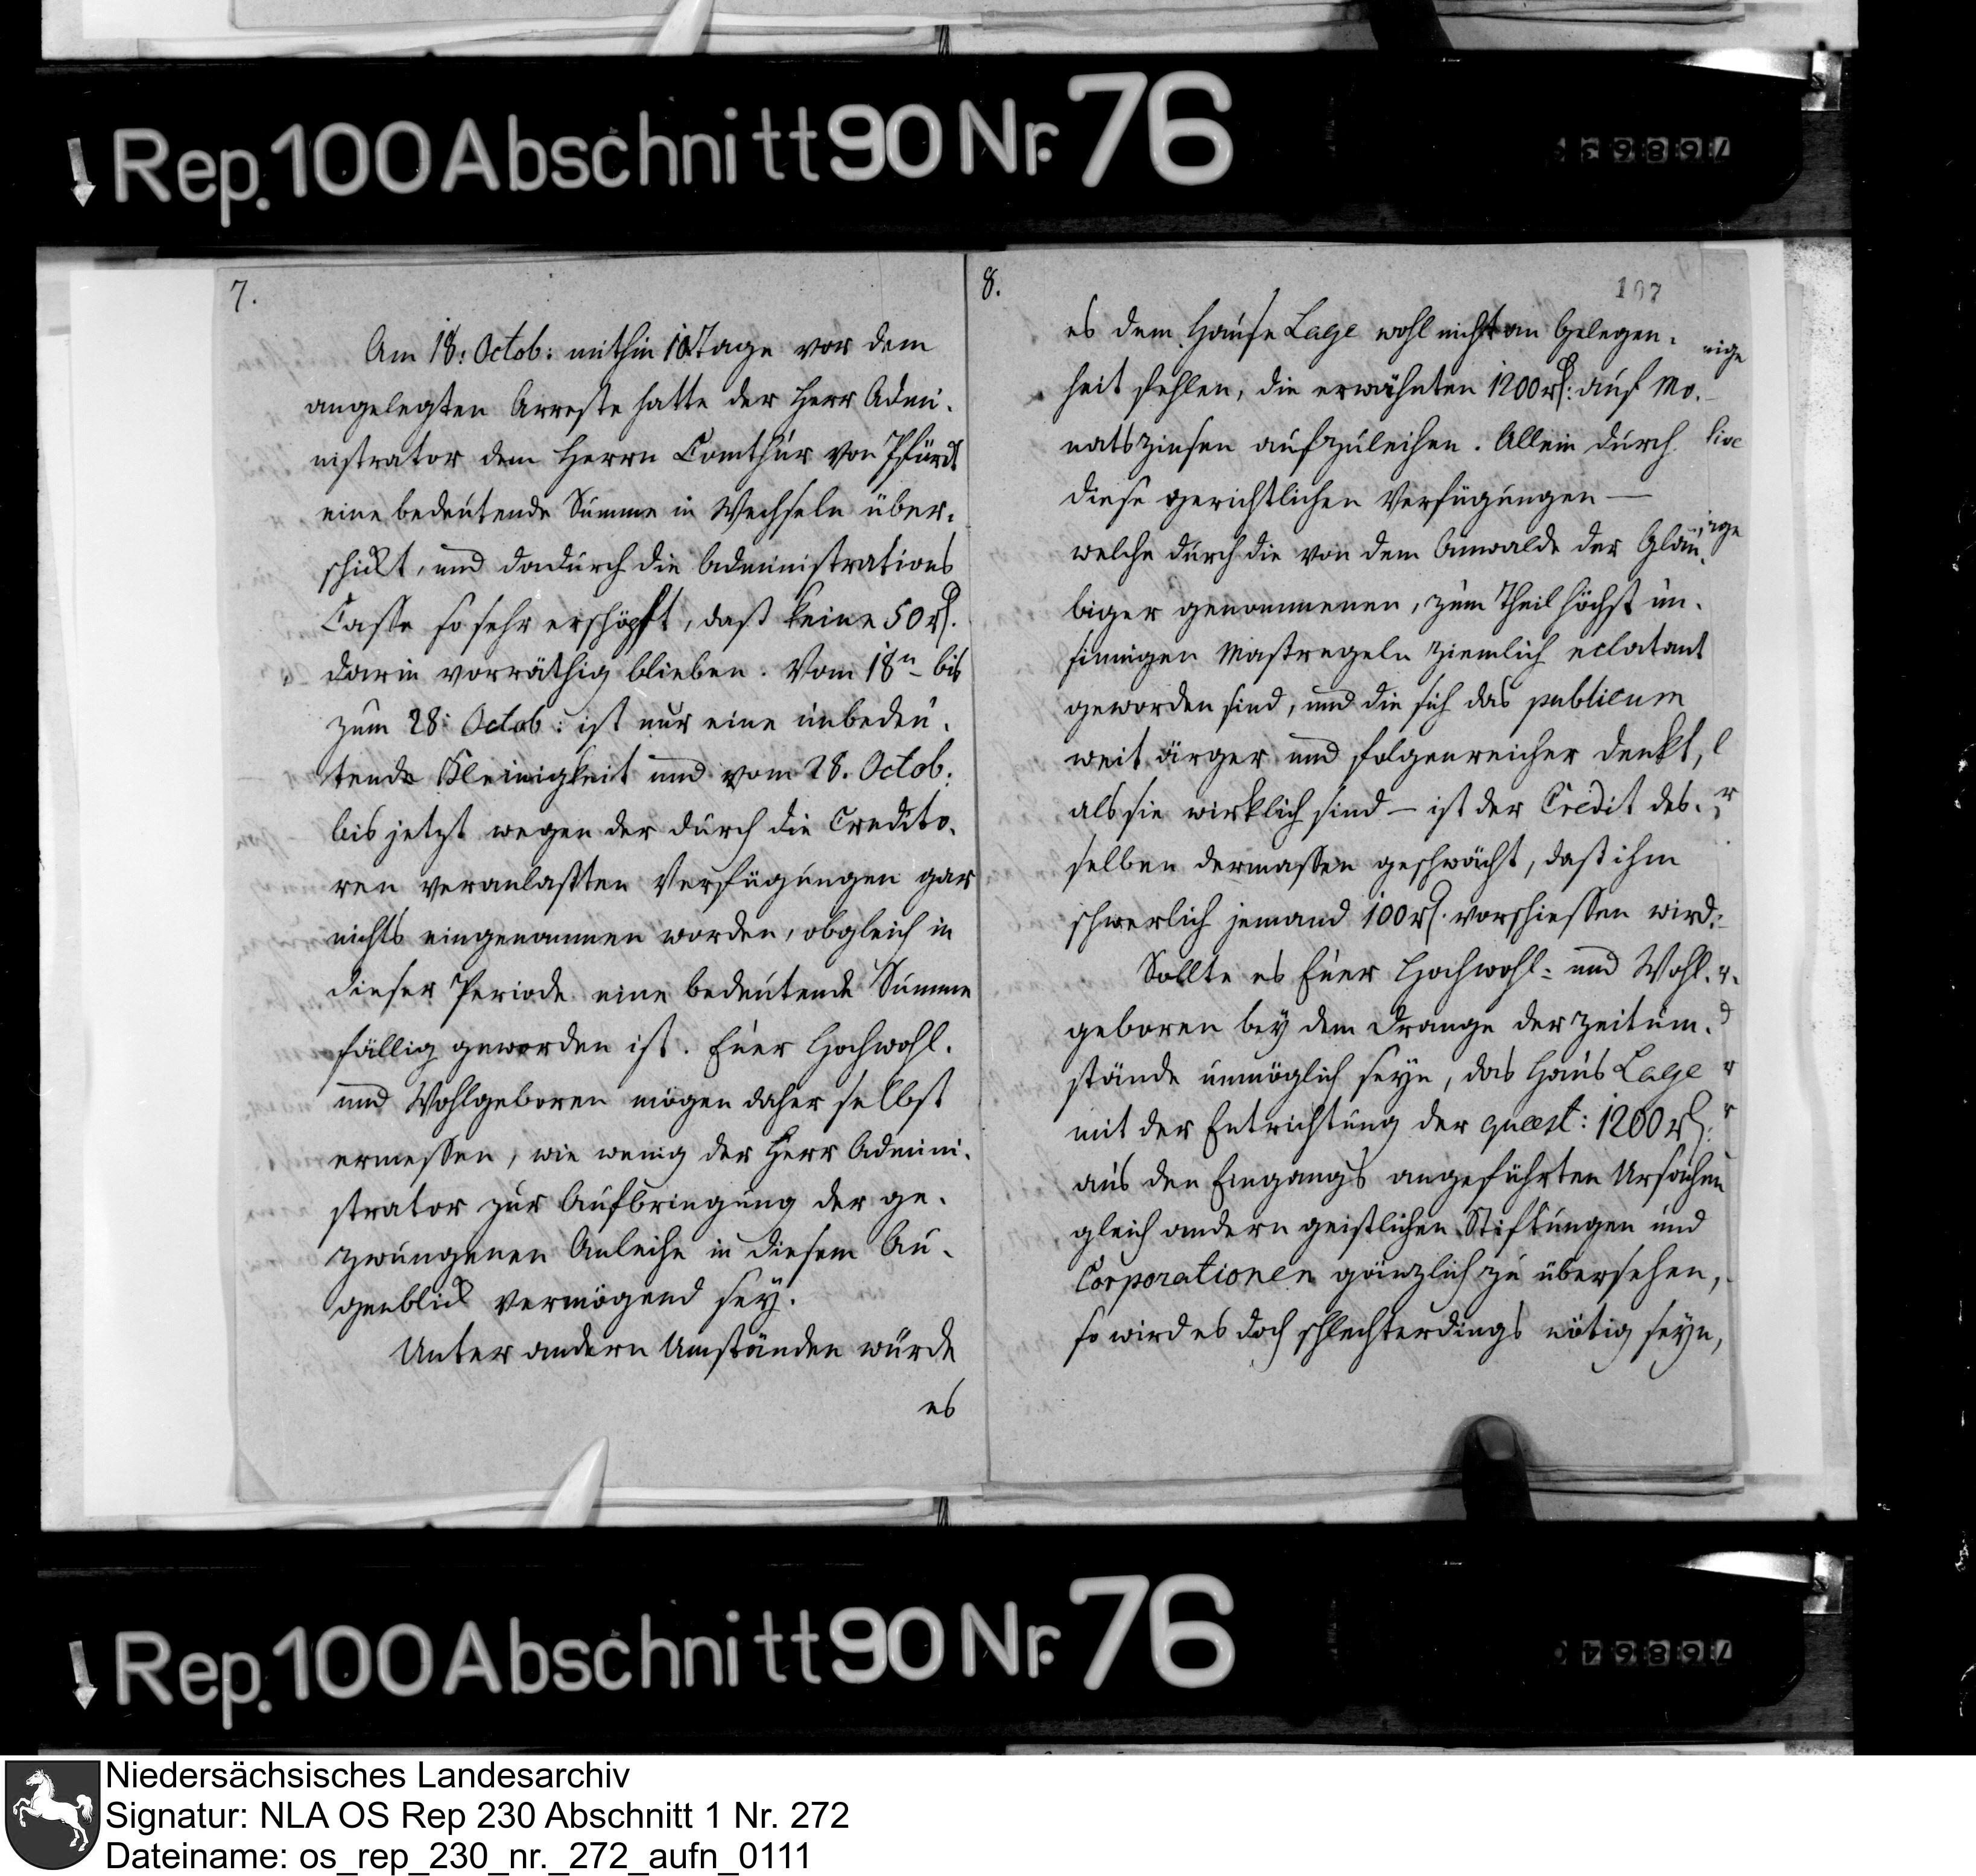 Rep. 100 Abschnitt 90 Nr. 76
7.
Am 18: Octob: mithin 10 Tage vor dem
angelegten Arreste hatte der Herr Admi-
nistrator dem Herrn Comthur von Pfürdt
eine bedeutende Summe in Wechseln über-
schickt, und dadurch die Administrations
Casse so sehr erschöpft, daß keine 50 rl.
darin vorräthig blieben. Vom 18n bis
zum 28: Octob: ist nur eine unbedeu-
tende Kleinigkeit und vom 28. Octob:
bis jetzt wegen der durch die Credito-
ren veranlaßten Verfügungen gar
nichts eingenommen worden, obgleich in
dieser Periode eine bedeutende Summe
fällig geworden ist. Euer Hochwohl-
und Wohlgeboren mögen daher selbst
ermessen, wie wenig der Herr Admini-
strator zur Aufbringung der ge-
zwungenen Anleihe in diesem Au-
genblick vermögend sey.
Unter andern Umständen würde
es
8.
107
es dem Hause Lage wohl nicht an Gelegen-
heit fehlen, die erwähnten 1200 rl: auf Mo-
natszinsen aufzuleihen. Allein durch
diese gerichtlichen Verfügungen —
welche durch die von dem Anwalde der Gläu-
biger genommenen, zum Theil höchst un-
sinnigen Mastregeln ziemlich eclatant
geworden sind, und die sich das publicum
weit ärger und folgenreicher denkt,
als sie wirklich sind — ist der Credit des-
selben dermassen geschwächt, daß ihm
schwerlich jemand 100 rl. vorschiessen wird.
Sollte es Euer Hochwohl- und Wohl-
geboren bey dem Drange der Zeitum-
stände unmöglich seyn, das Haus Lage
mit der Entrichtung der quaest: 1200 rl:
aus den Eingangs angeführten Ursachen
gleich andern geistlichen Stiftungen und
Corporationen gänzlich zu übersehen,
so wird es doch schlechterdings nötig seyn,
Rep. 100 Abschnitt 90 Nr. 76
Niedersächsisches Landesarchiv
Signatur: NLA OS Rep 230 Abschnitt 1 Nr. 272
Dateiname: os_rep_230_nr._272_aufn_0111